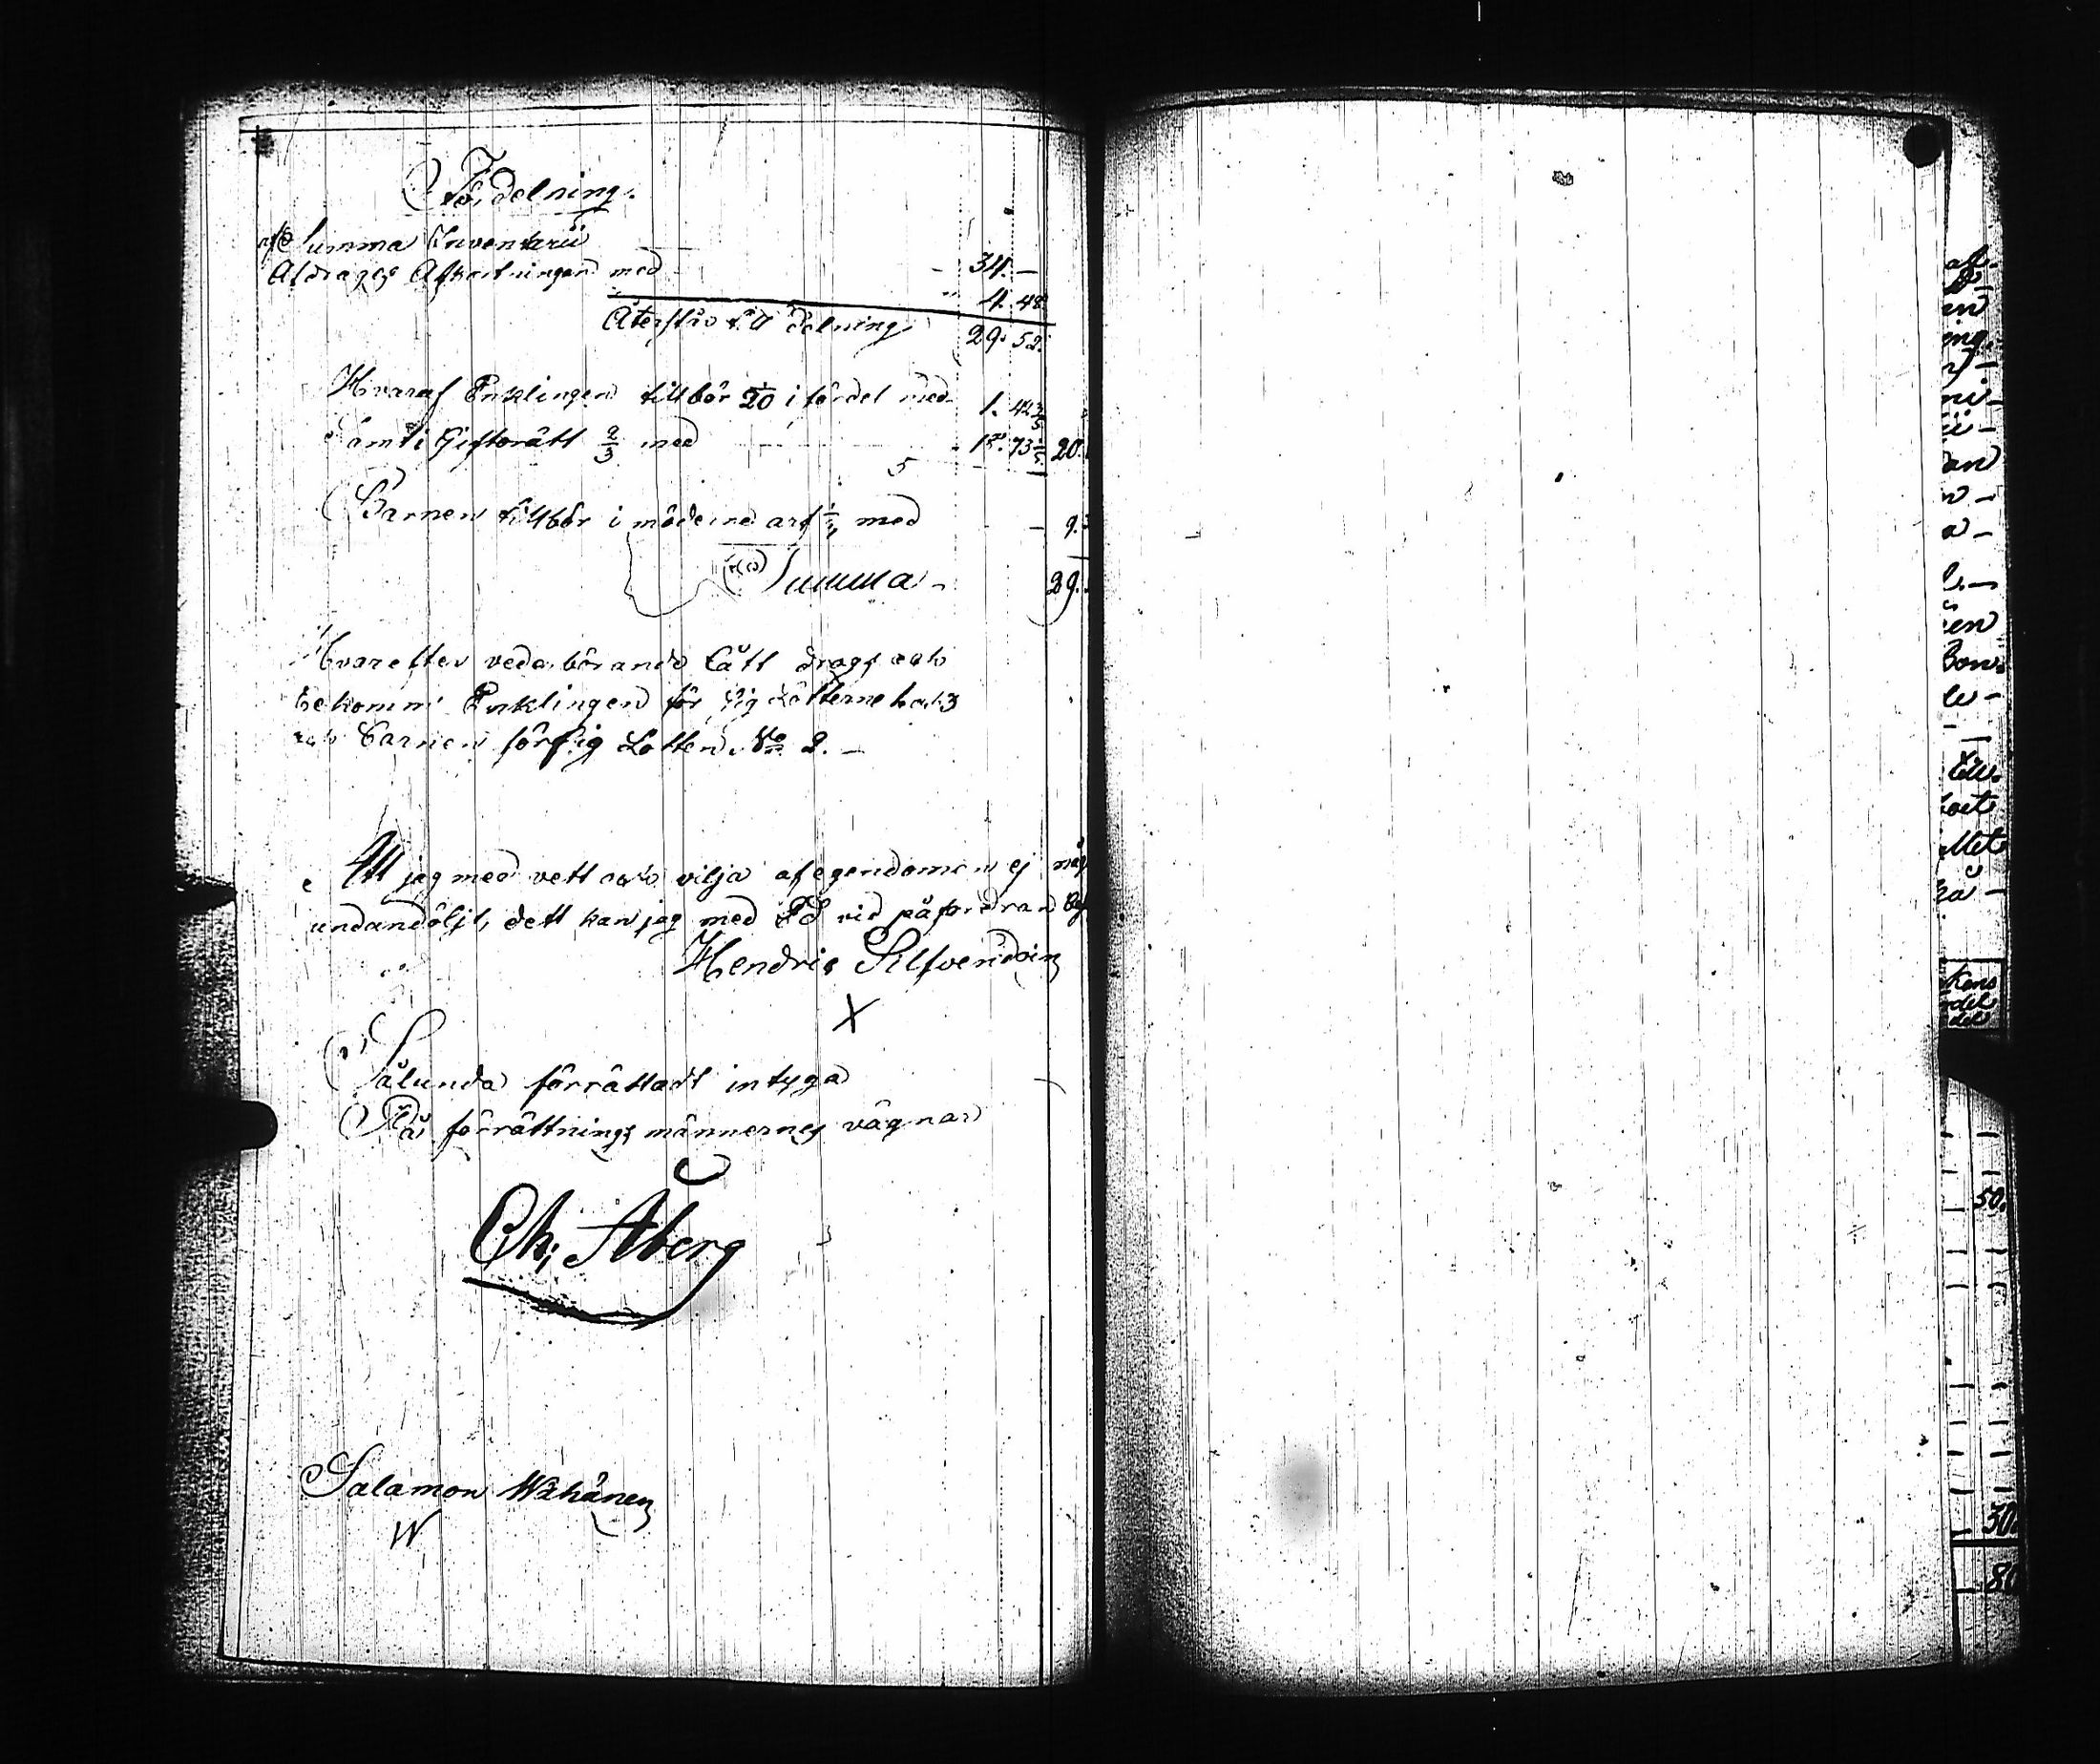 Fördelning.
af Summa Inventarii
Afdrages Afkortningen med - - 34. -
" 4. 48
Återstår till delning 29. 52.
Hvaraf Enklingen tillbör 1/20 i fördel med 1. 42 3/5
Samt i Giftorätt 2/3 med - 18. 73 20.
Barnen tillbör i möderne arf 1/3 med - - 9.
Summa - 29.
Hvarefter vederbörande Lått drogs och
bekomm Enklingen för sig Lotterne 1 och 3
och Barnen för sig Lotten No 2. -
Att jag med vett och vilja af egendomen ej någ
undandöljt, dett kan jag med Ed vid påfordran
Hendric Silfvendoin
X
Sålunda förrättadt intyga
På förrättnings männernes vägnar
Ch; Åberg
Salamon Wähänen
W
en
ing.
an
en
Met
50.
30
80